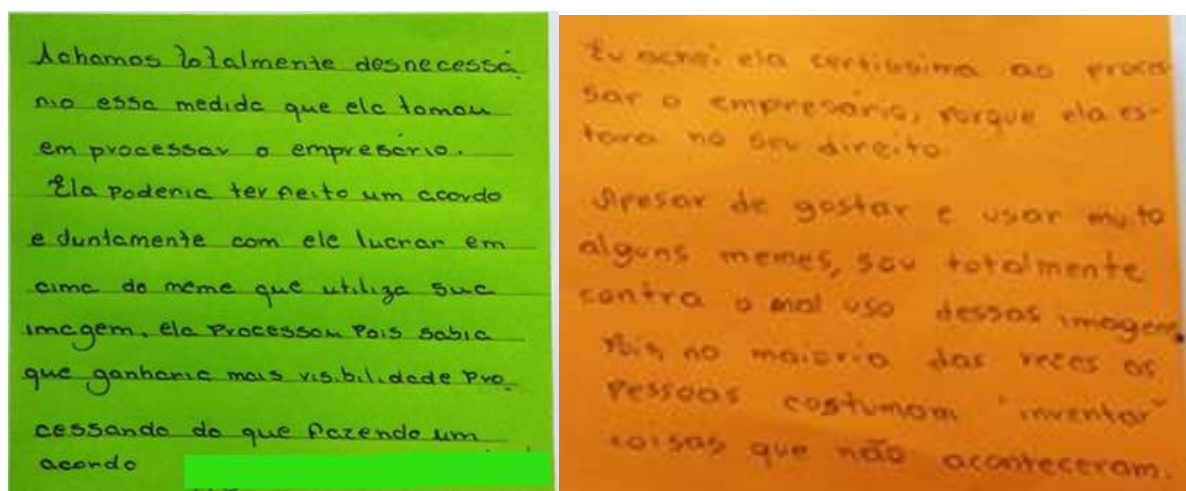 Achamos totalmente desnecessá
rio essa medida que ela tomou
em processar o empresário.
Ela poderia ter feito um acordo
e juntamente com ele lucrar em
cima do meme que utiliza sua
imagem, ela processou pois sabia
que ganharia mais visibilidade pro
cessando do que fazendo um
acordo
Eu achei ela certissima ao proces
sar o empresário, porque ela es-
tava no seu direito.
Apesar de gostar e usar muito
alguns memes, sou totalmente
contra o mal uso dessas imagens,
Pois, na maioria das vezes as
pessoas costumam "inventar"
coisas que não aconteceram.